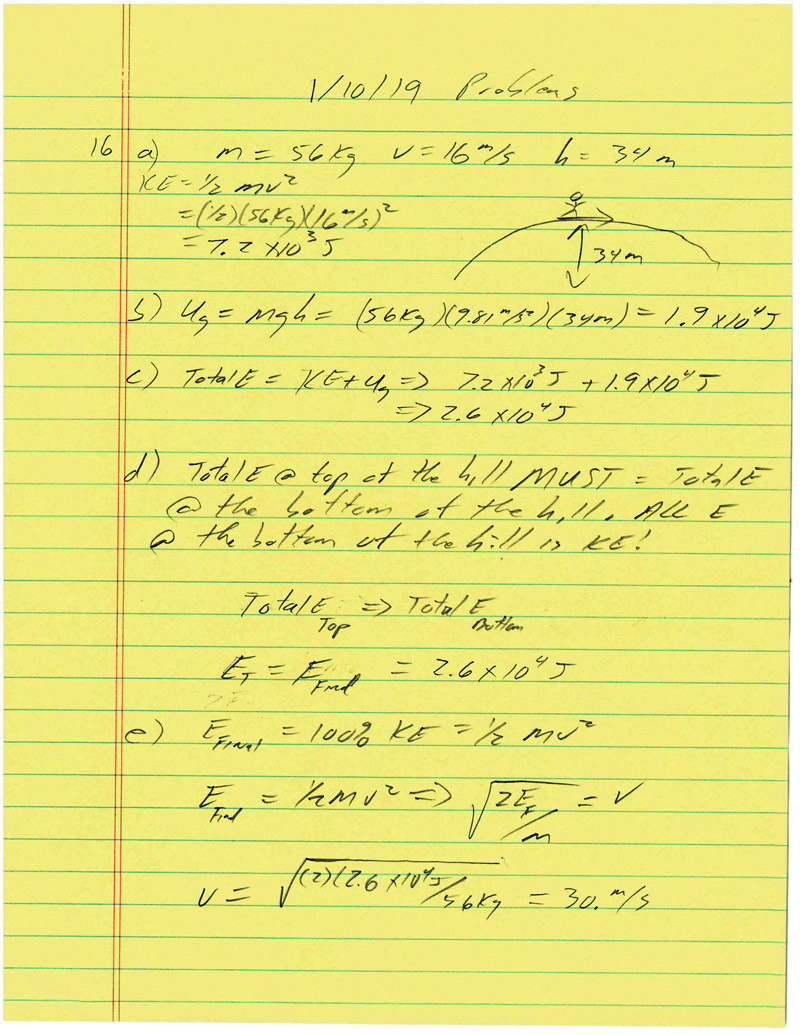 1/10/19 Problems
16 a) m = 56 Kg v = 16 m/s h = 34 m
KE = 1/2 mv²
= (1/2)(56 Kg)(16 m/s)²
= 7.2 x10³ J
34 m
b) Ug = mgh = (56 Kg)(9.81 m/s²)(34m) = 1.9 x10⁴ J
c) Total E = KE + Ug => 7.2 x10³ J + 1.9 x10⁴ J
=> 2.6 x10⁴ J
d) Total E @ top of the hill MUST = Total E
@ the bottom of the hill. ALL E
@ the bottom of the hill is KE!
Total E Top => Total E Bottom
E_T = E Final = 2.6 x 10⁴ J
e) E Final = 100% KE = 1/2 mv²
E Final = 1/2 mv² => √2E_F/m = v
v = √(2)(2.6 x10⁴ J/56 Kg = 30. m/s